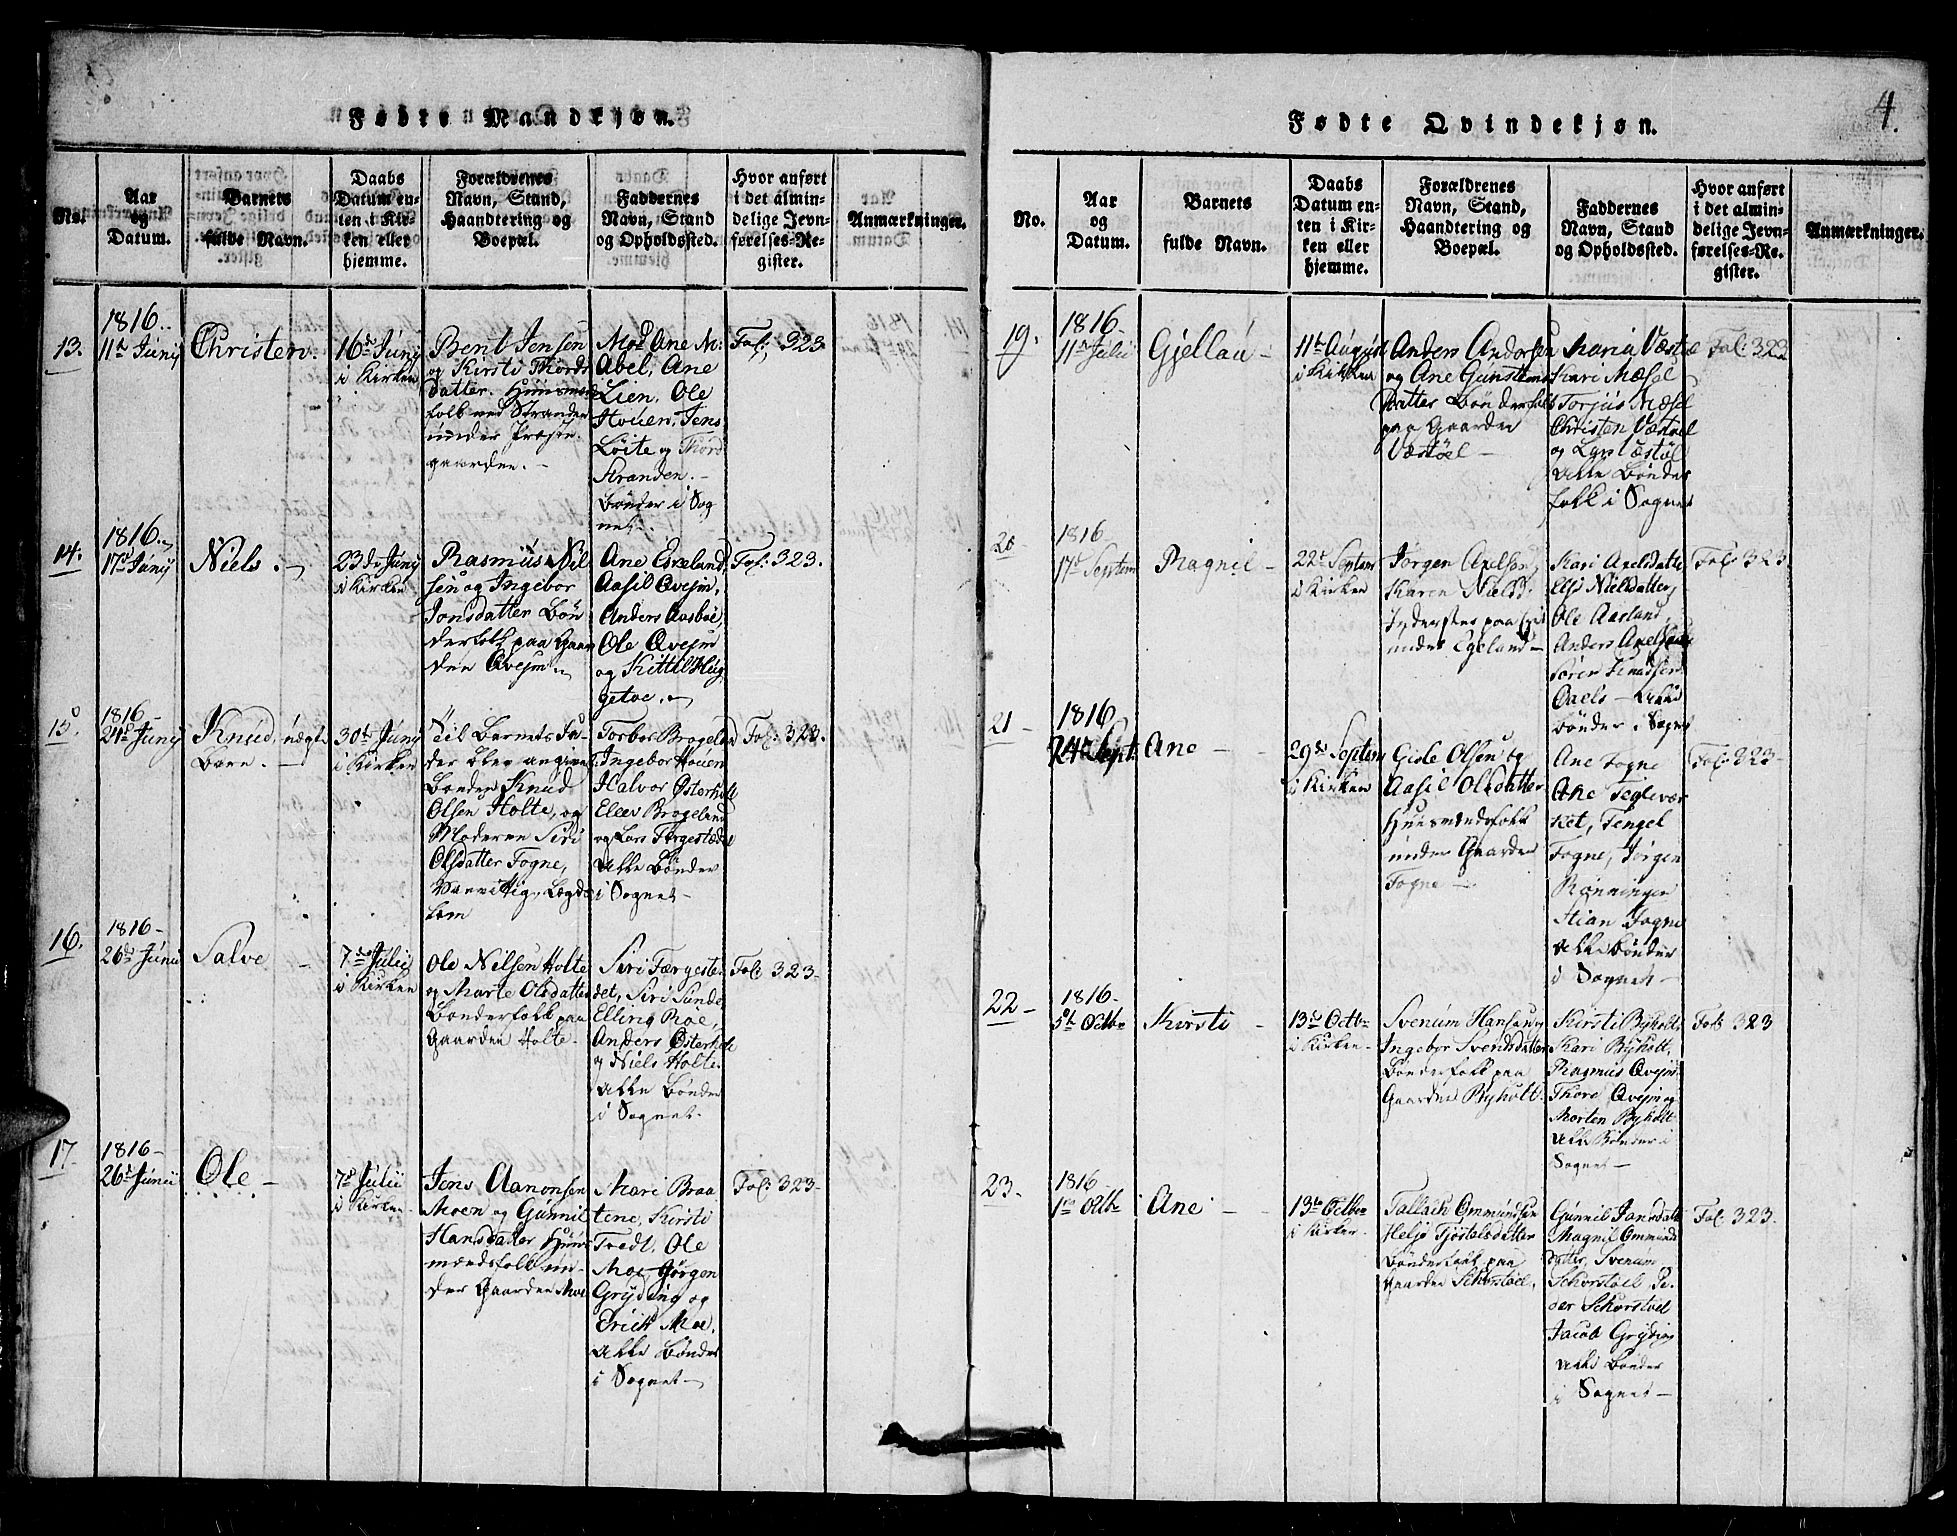 Fødte Mandkjøn.
No.
Aar
og
Datum.
Barnets
fulde Navn.
Daabs
Datum en-
ten i Kir-
ken eller
hjemme.
Forældrenes
Navn, Stand,
Haandtering og
Boepæl.
Faddernes
Navn, Stand
og Opholdssted.
Hvor anført
i det almin-
delige Jevn-
førelses-Re-
gister.
Anmærkninger.
13.
1816.
11te Junij
Christen.
16de Junij
i Kirken
Bent Jensen
og Kirsti Thords
datter. Huusmands
folk ved Stranden
under Præste-
gaarden.
Mad Ane M:
Abel, Ane
Lien, Ole
Houen, Jens
Løite og Thord
Stranden.
Bønder i Sog
net.
Fol: 323
14.
1816.
17de Junij
Niels.
23de Junij
i Kirken
Rasmus Nil
sen og Ingebor
Jonsdatter Bøn
derfolk paa Gaar
den Qvejm
Ane Eskeland,
Aasil Qvejm,
Anders Aasbøe,
Ole Qvejm
og Kittil Hug
getve.
Fol: 323.
15.
1816
24de Junij
Knud, uægte
Barn.
30te Junij
i Kirken
Til Barnets Fa-
der blev angiven
Bonden Knud
Olsen Holte, og
Moderen Siri
Olsdatter Fogne,
Vanvittig, Lægds
lem
Torbor Brogeland
Ingebor Houen
Halvor Østerholt
Ellev Brogeland
og Lars Færgestæden
Alle Bønder
i Sognet
Fol: 323.
16.
1816
26de Junii
Salve
7de Julij
i Kirken
Ole Nilsen Holte
og Marte Olsdatter
Bønderfolk paa
Gaarden Holte
Siri Færgeste
det, Siri Sunde
Elling Røe,
Anders Østerholt
og Niels Holte
Alle Bønder
i Sognet.
Fol: 323
17
1816
26de Junii
Ole
7de Julii
i Kirken
Jens Aanonsen
Moen og Gunnil
Hansdatter Huus
mandsfolk un-
der Gaarden Moe
Mari Braa
tene, Kirsti
Tvedt, Ole
Moe, Jørgen
Gryding og
Erich Moe.
Alle Bønder
i Sognet
Fol: 323
4.
Fødte Qvindekjøn.
No.
Aar
og
Datum.
Barnets
fulde Navn.
Daabs
Datum en-
ten i Kir-
ken eller
hjemme.
Forældrenes
Navn, Stand,
Haandtering og
Boepæl.
Faddernes
Navn, Stand
og Opholdssted.
Hvor anført
i det almin-
delige Jevn-
førelses-Re-
gister.
Anmærkninger.
19.
1816
11te Julii
Gjellau
11te August
i Kirken
Anders Andersen
og Ane Gunstens
Datter Bønderfolk
paa Gaarden
Væstøel
Maria Væstøl
Kari Mæsel
Torjus Mæsel
Christen Væstøel
og Lars Væstøl
Alle Bønder
folk i Sognet
Fol: 323
20
1816
17de Septem
Ragnil
22de Septem
i Kirken
Jørgen Axelsen
Karen Nielsd:
Inderster paa
under Egeland
Kari Axelsdatter
Elsi Nielsdatter
Ole Aasland,
Anders Axelsen
Søren Knudsen
Bønder i Sognet
Fol: 323
21
1816
24de Sept:
Ane
29de Septem
i Kirken
Gisle Olsen og
Aasil Olsdatter
Huusmandsfolk
under Gaarden
Fogne
Ane Fogne
Ane Teglevær
ket, Tengel
Fogne, Jørgen
Rønningen
Stian Fogne
Alle Bønder
i Sognet
Fol: 323
22
1816
5te Octbr
Kirsti
13de Octbr
i Kirken
Svenum Hansen og
Ingebor Svendsdatter
Bønderfolk paa
Gaarden Byholt
Kirsti Byholt,
Kari Byholt,
Rasmus Qvejm
Thore Qvejm og
Morten Byholt
Alle Bønder i
Sognet
Fol: 323
23.
1816
1te Octbr
Ane
13de Octbr
i Kirken
Tallach Ommundsen
Helje Tjøstelsdatter
Bønderfolk paa
Gaarden Schorstøel,
Gunnil Jansdatter
Magnil Ommunds
datter, Svenum
Schorstøel, Pe
der Schorstøel
Jacob Gryding
Alle Bønder
i Sognet
Fol: 323.